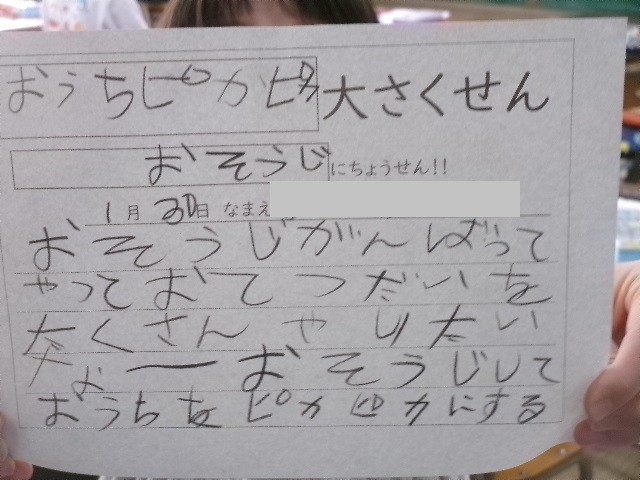 おうちピカピカ大さくせん
おそうじにちょうせん!!
1月30日 なまえ
おそうじがんばって
やっておてつだいを
たくさんやりたい
だよーおそうじして
おうちをピカピカにする